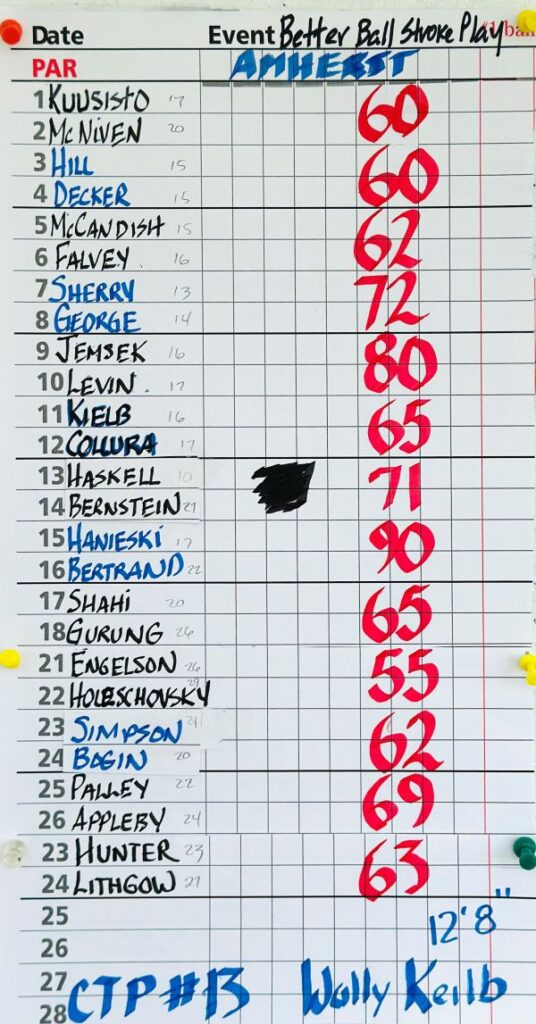 Date Event Better Ball Stroke Play
PAR AMHERST
1 KUUSISTO 17
60
2 McNIVEN 20
3 HILL 15
60
4 DECKER 15
5 McCANDISH 15
62
6 FALVEY 16
7 SHERRY 13
72
8 GEORGE 14
9 JEMSEK 16
80
10 LEVIN 17
11 KIELB 16
65
12 COLLURA 17
13 HASKELL 10
71
14 BERNSTEIN 21
15 HANIESKI 17
90
16 BERTRAND 22
17 SHAHI 20
65
18 GURUNG 26
21 ENGELSON 26
55
22 HOLESCHOVSKY 29
23 SIMPSON 21
62
24 BOGIN 20
25 PALLEY 22
69
26 APPLEBY 24
23 HUNTER 23
63
24 LITHGOW 21
25
12'8"
26
27
CTP #13 Wally Keilb
28